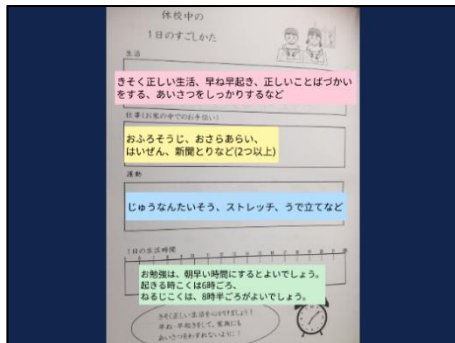 休校中の
1日のすごしかた
生活
きそく正しい生活、早ね早起き、正しいことばづかい
をする、あいさつをしっかりするなど
仕事(お家の中でのお手伝い)
おふろそうじ、おさらあらい、
はいぜん、新聞とりなど(2つ以上)
運動
じゅうなんたいそう、ストレッチ、うで立てなど
1日の生活時間
お勉強は、朝早い時間にするとよいでしょう。
起きる時こくは6時ごろ、
ねるじこくは、8時半ごろがよいでしょう。
きそく正しい生活を心がけましょう!
早ね・早起きをして、家族にも
あいさつをわすれないように!